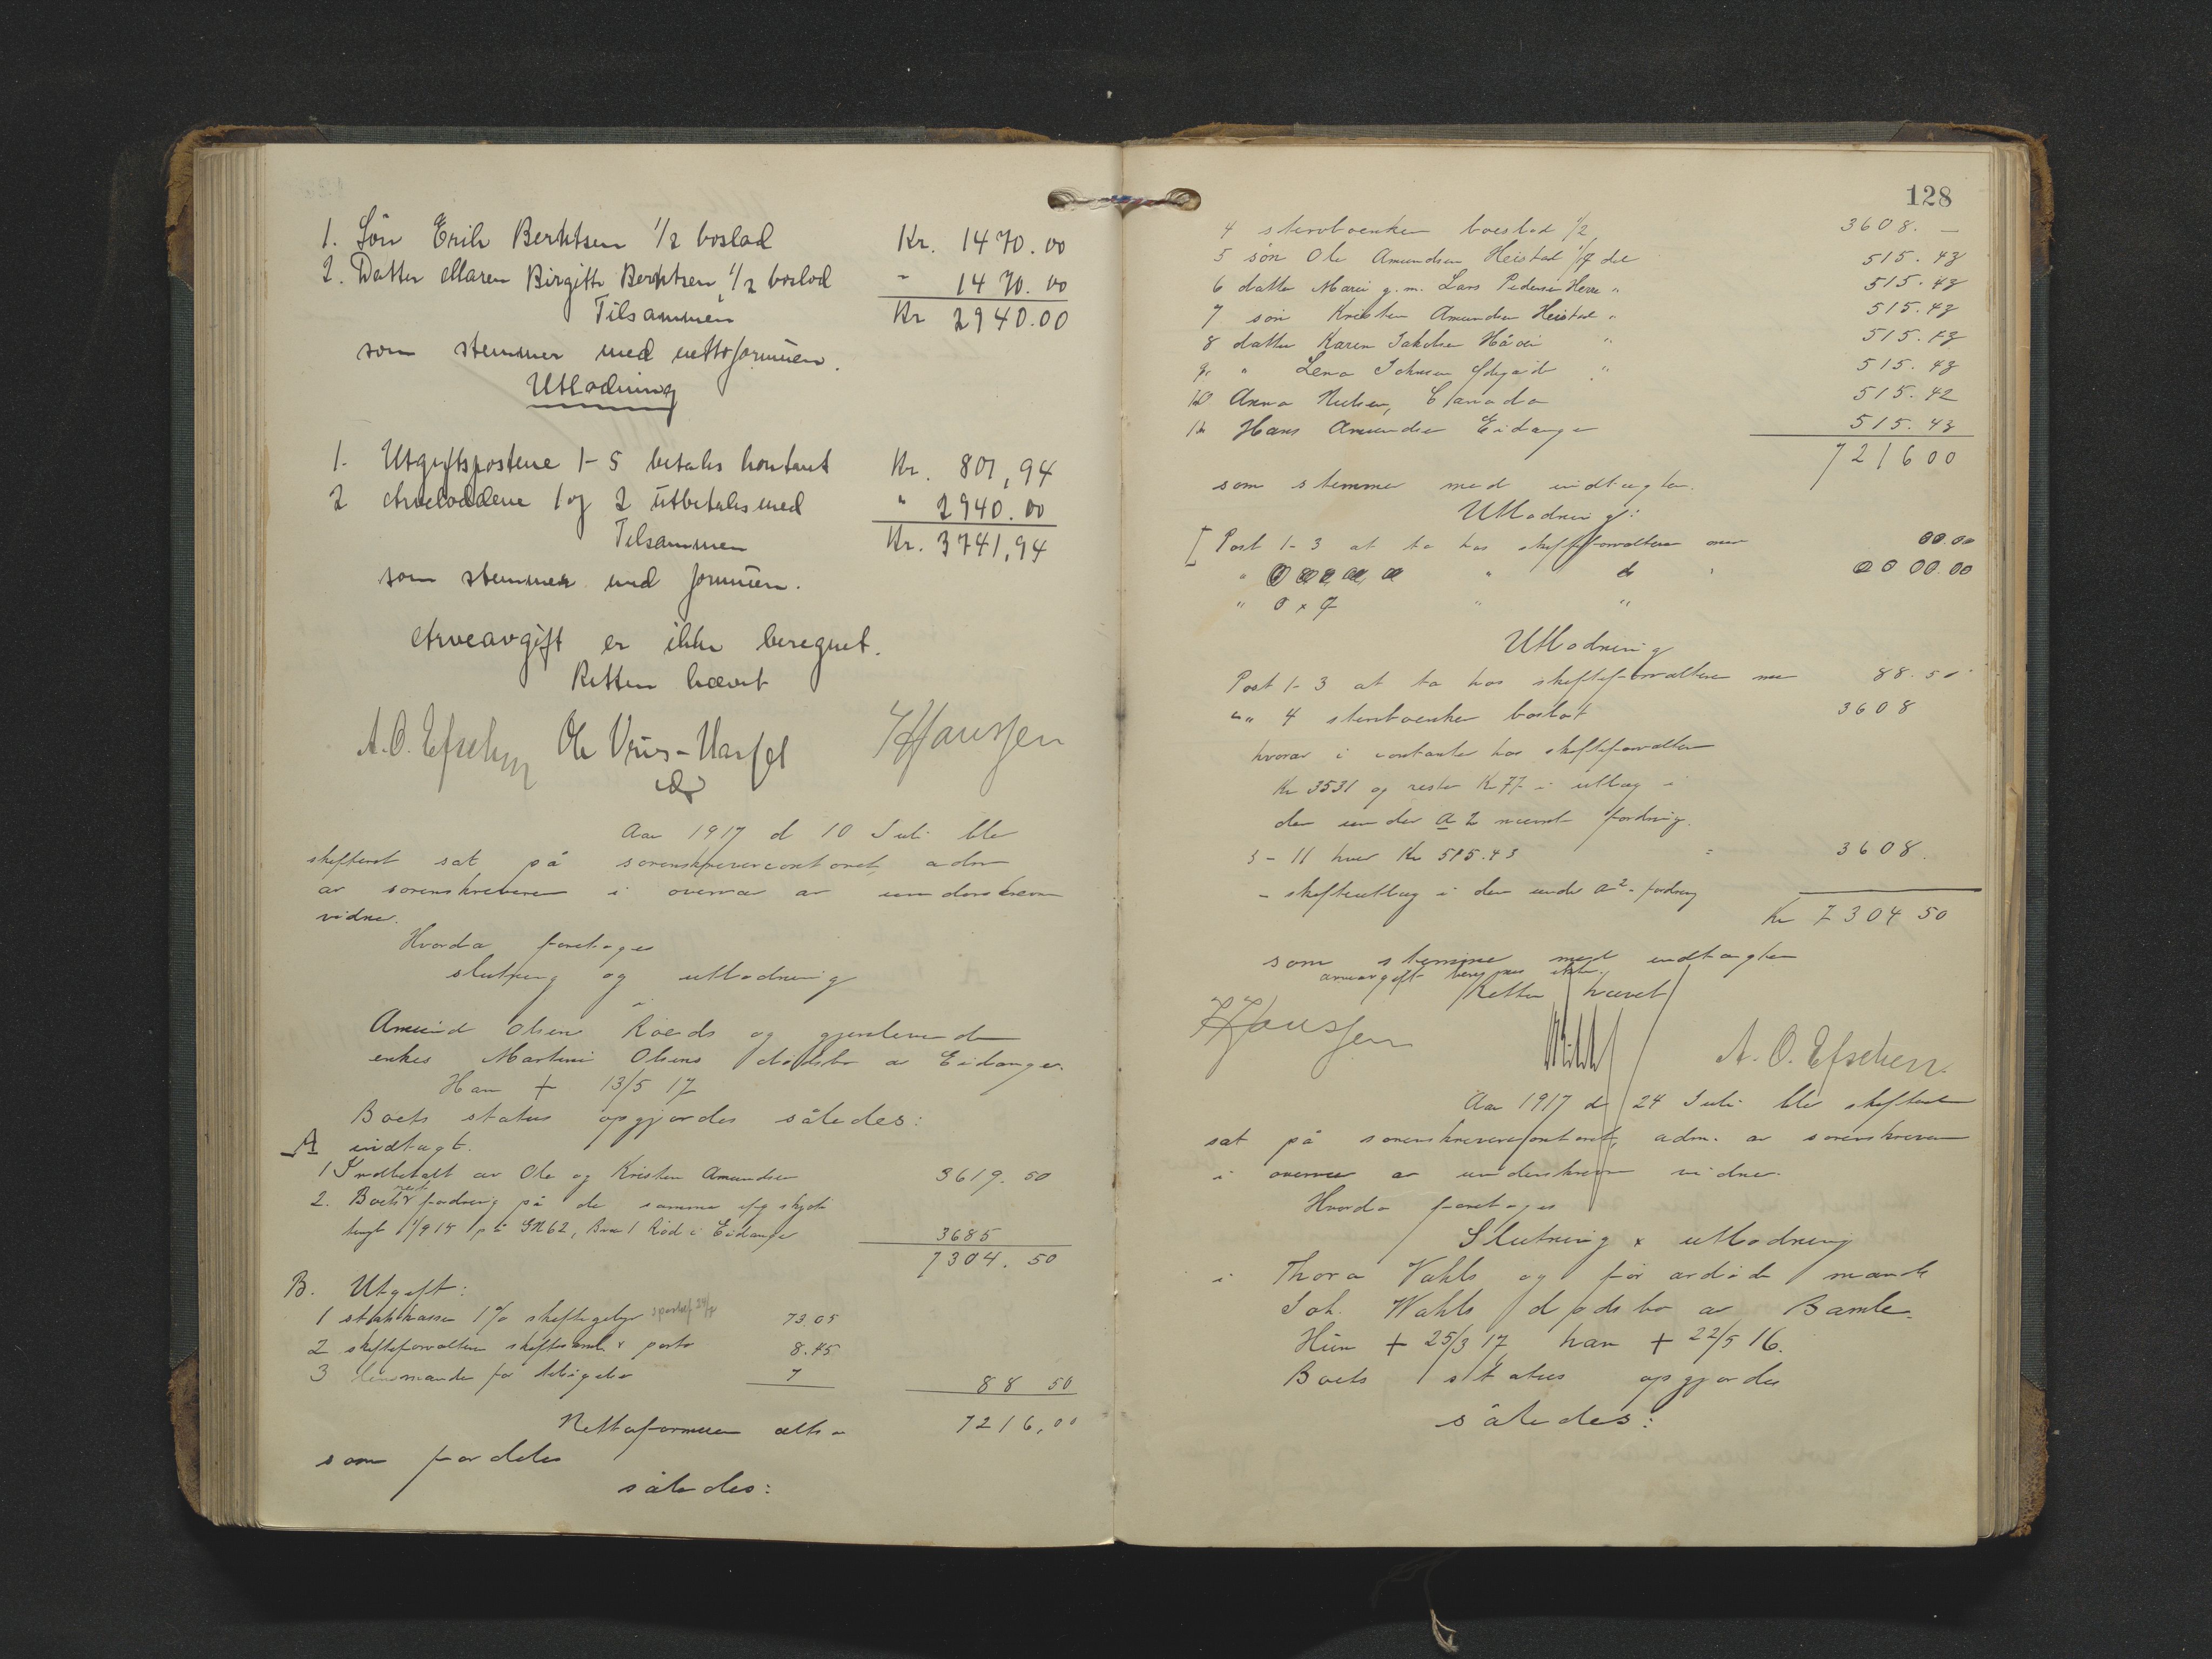 1. Søn Erik Berntsen 1/2 boslod Kr. 1470.00
2. Datter Maren Birgitte Berntsen, 1/2 boslod " 1470.00
Tilsammen Kr 2940.00
som stemmer med nettoformuen.
Utlodning
1. Utgiftspostene 1-5 betales kontant Kr. 801,94
2 Arveloddene 1 og 2 utbetales med " 2940.00
Tilsammen Kr. 3741,94
som stemmer med formuen.
Arveavgift er ikke beregnet.
Retten hævet
A. O. Efschen Ole
Aar 1917 d 10 Juli blev
skifteret sat på sorenskrivercontoret, adm
av sorenskriveren i overvær av underskrevne
vidne.
Hvorda foretoges
slutning og utlodning
i
Amund Olsen Røeds og gjenlevende
enkes Martine Olsens dødsbo av Eidanger.
Han + 13/5 17
Boets status opgjordes således:
A indtægt.
1 Indbetalt av Ole og Kristen Amundsen 3619.50
2. Boets rest fordring på de samme ifg skjøte
tingl 1/9 15 på GN 62, Bno 1 Rød i Eidanger 3685
7304.50
B. Utgift:
1 statskassen 1% skiftegebyr 73.05
2 skifteforvalteren & porto 8.45
3 lensmanden for 7 88 50
Nettoformuen altså 7216,00
som fordeles
således:
128
4 stervboenken boeslod 1/2 3608. —
5 søn Ole Amundsen Heistad 1/7 del 515.43
6 datter Maren g.m. Lars Pedersen Herre " 515.43
7 søn Kristen Amundsen Heistad " 515.43
8 datter Karen Jakobsen " 515.43
9. " Lena Johnsen " 515.43
10 Anna Nielsen, Canada 515.42
11 Hans Amundsen Eidanger 515.43
721600
som stemmer med indtægten.
Utlodning:
[ Post 1-3 at ta hos skifteforvalteren med 00.00
" " do " 0000.00
" 0 x 7 " "
Utlodning
Post 1-3 at ta hos skifteforvalteren med 88.50
" 4 stervboenken boslod 3608
hvorav i contanter hos skifteforvalteren
Kr 3531 og resten Kr 77 i utlæg i
den under A 2 nævnte fordring.
5-11 hver Kr 515.43 = 3608.
- skifteutlæg i den under A2 fordring
Kr 7304 50
som stemmer med indtægten
arveavgift beregnes ikke.
Retten hævet
A. O. Efschen.
Aar 1917 d 24 Juli blev skifteret
sat på sorenskrivercontoret, adm. av sorenskriveren
i overvær av underskrevne vidne.
Hvorda foretoges
Slutning & utlodning
i Thora Wahls og før avdøde mands
Joh. Wahls dødsbo av Bamle.
Hun + 25/3 17, han + 22/5 16.
Boets status opgjordes
således: